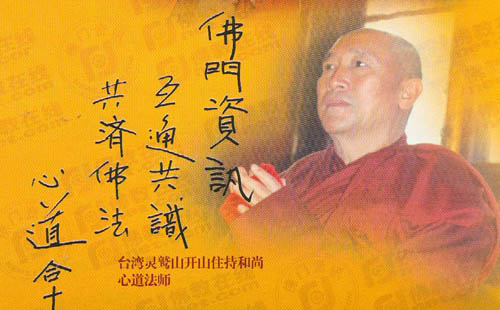 佛門資訊
互通共識
共済佛法
心道合十
台湾灵鹫山开山住持和尚
心道法师